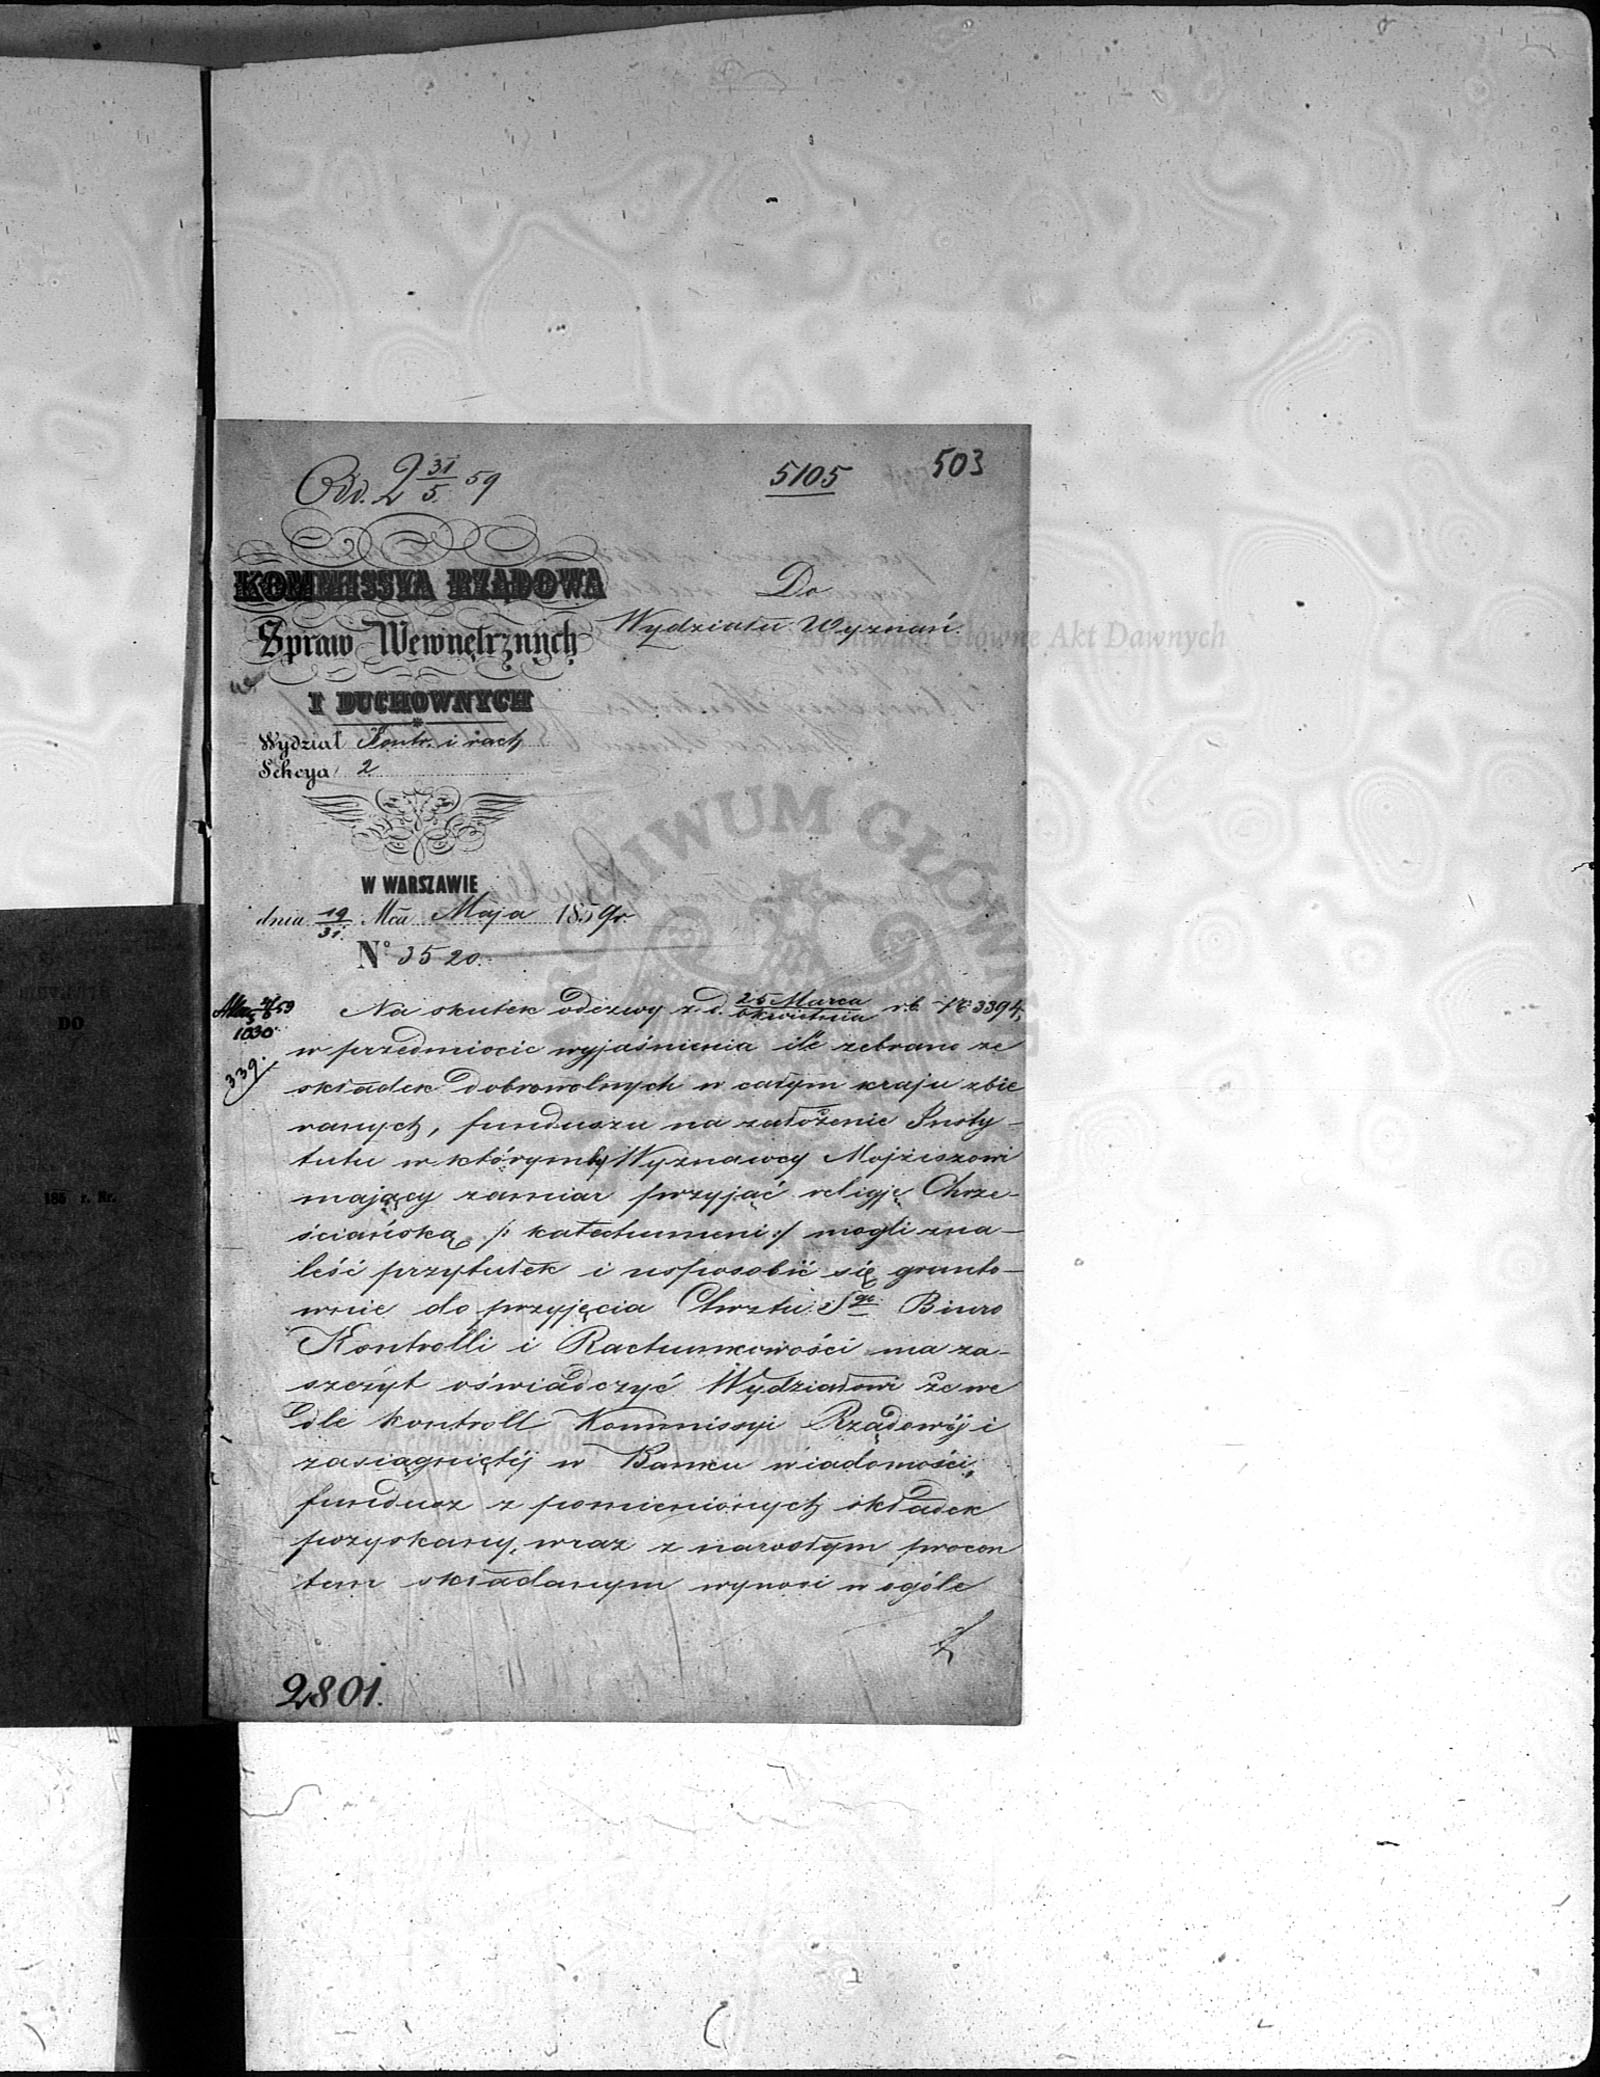 Odd. 2 31/5 59
5105
503
KOMMISSYA RZĄDOWA
Spraw Wewnętrznych
I DUCHOWNYCH
Wydział Kontr. i rach
Sekcya 2
W WARSZAWIE
dnia 19/31 Mca Maja 1859 r.
Nº 3520.
Do
Wydziału Wyznań.
1030
339.
Na skutek odezwy z d. 25 Marca/6 Kwietnia r.b. Nº 3394,
w przedmiocie wyjaśnienia ile zebrano ze
składek dobrowolnych w całym kraju zbie
ranych, funduszu na założenie Insty-
tutu w którymby Wyznawcy Mojżeszowi
mający zamiar przyjąć religję Chrze-
ściańską /: katechumeni :/ mogli zna-
leść przytułek i usposobić się grunto-
wnie do przyjęcia Chrztu Sgo Biuro
Kontrolli i Rachunkowości ma za-
szczyt oświadczyć Wydziałowi że we
dle kontroll Kommissyi Rządowéj i
zasiągniętéj w Banku wiadomości,
fundusz z pomienionych składek
pozyskany, wraz z narosłym procen
tem składanym wynosi w ogóle
2801.
DO
185 r. Nr.
ARCHIWUM GŁÓWNE
Archiwum Główne Akt Dawnych
Archiwum Główne Akt Dawnych